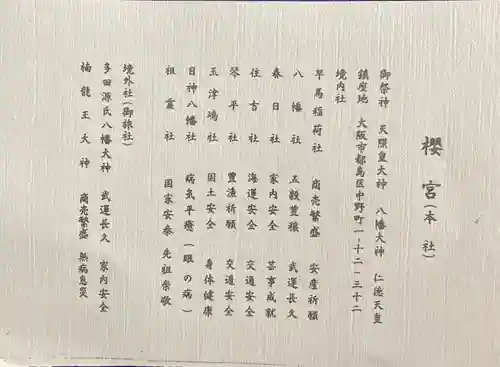 櫻宮(本社)
御祭神 天照皇大神 八幡大神 仁徳天皇
鎮座地 大阪市都島区中野町一-十二-三十二
境内社
早馬稲荷社 商売繁盛 安産祈願
八幡社 五穀豊穣 武運長久
春日社 家内安全 芸事成就
住吉社 海運安全 交通安全
琴平社 豊漁祈願 交通安全
玉津嶋社 国土安全 身体健康
日神八幡社 病気平癒(眼の病)
祖霊社 国家安泰 先祖崇敬
境外社(御旅社)
多田源氏八幡大神 武運長久 家内安全
楠龍王大神 商売繁盛 無病息災